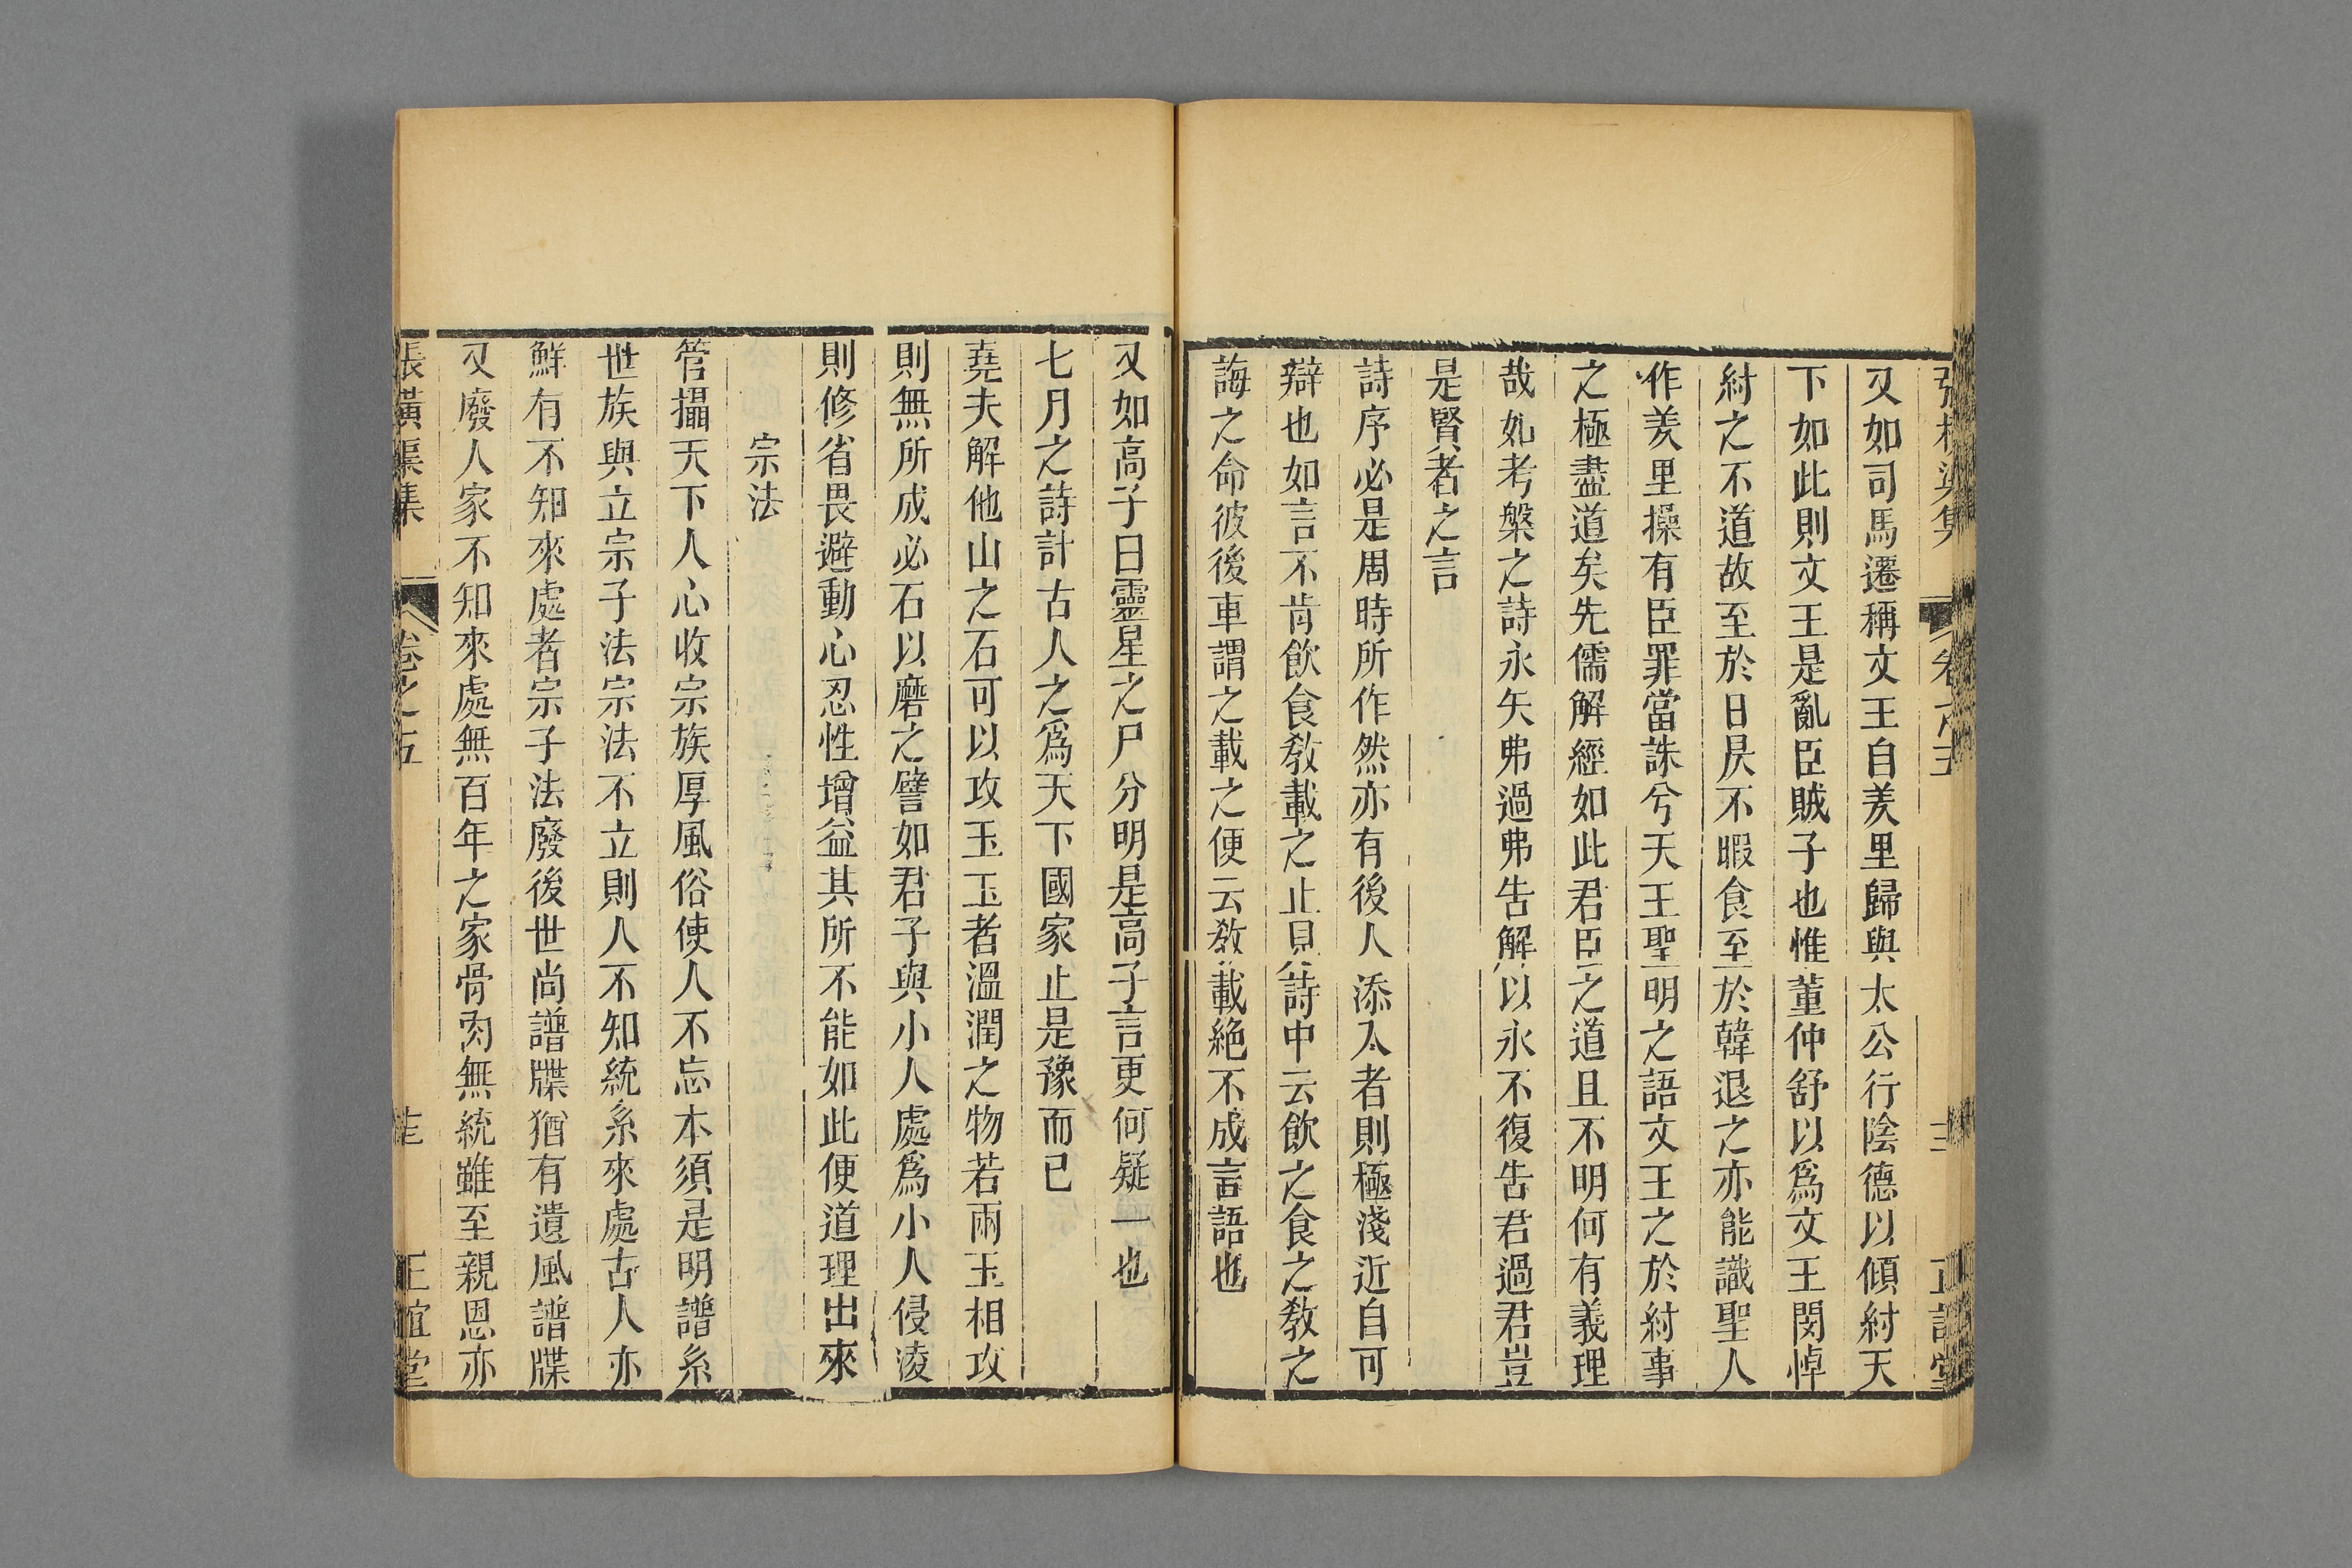 又如司馬遷稱文王自羑里歸與太公行陰德以傾紂天
下如此則文王是亂臣賊子也惟董仲舒以爲文王閔悼
紂之不道故至於日昃不暇食至於韓退之亦能識聖人
作羑里操有臣罪當誅兮天王聖明之語文王之於紂事
之極盡道矣先儒解經如此君臣之道且不明何有義理
哉如考槃之詩永矢弗過弗告解以永不復告君過君豈
是賢者之言
詩序必是周時所作然亦有後人添入者則極淺近自可
辯也如言不肯飲食敎載之止見詩中云飲之食之敎之
誨之命彼後車謂之載之便云敎載絶不成言語也
又如高子曰靈星之尸分明是高子言更何疑一也
七月之詩計古人之爲天下國家止是豫而已
堯夫解他山之石可以攻玉玉者溫潤之物若兩玉相攻
則無所成必石以磨之譬如君子與小人處爲小人侵凌
則修省畏避動心忍性增益其所不能如此便道理出來
宗法
管攝天下人心收宗族厚風俗使人不忘本須是明譜系
世族與立宗子法宗法不立則人不知統系來處古人亦
鮮有不知來處者宗子法廢後世尚譜牒猶有遺風譜牒
又廢人家不知來處無百年之家骨肉無統雖至親恩亦
張橫渠集
卷之五
正誼堂